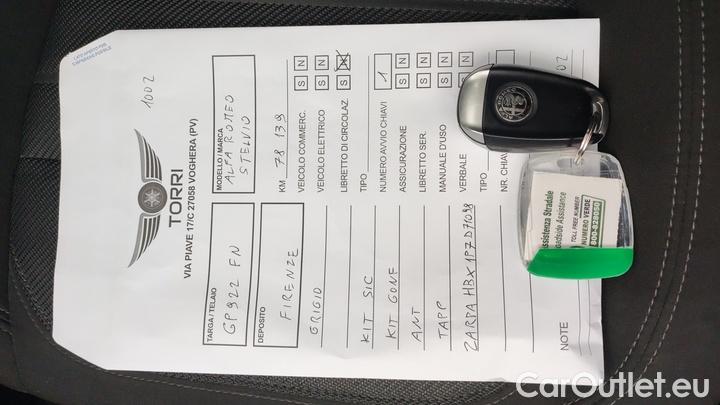 LATO APERTO PER
CORRISPONDENZA
1002
TORRI
VIA PIAVE 17/C 27058 VOGHERA (PV)
TARGA / TELAIO
GP922 FN
MODELLO / MARCA
ALFA ROMEO
STELVIO
DEPOSITO
FIRENZE
KM 78 139
GRIGIO
VEICOLO COMMERC. S N
VEICOLO ELETTRICO S N
KIT SIC
LIBRETTO DI CIRCOLAZ. S
KIT GONF
TIPO
ANT
NUMERO AVVIO CHIAVI 1
TAPP
ASSICURAZIONE S N
LIBRETTO SER. S N
MANUALE D'USO S N
VERBALE S N
TIPO
NR. CHIAVI
NOTE
ALFA ROMEO
Assistenza Stradale
Roadside Assistance
TOLL FREE NUMBER
NUMERO VERDE
CarOutlet.eu